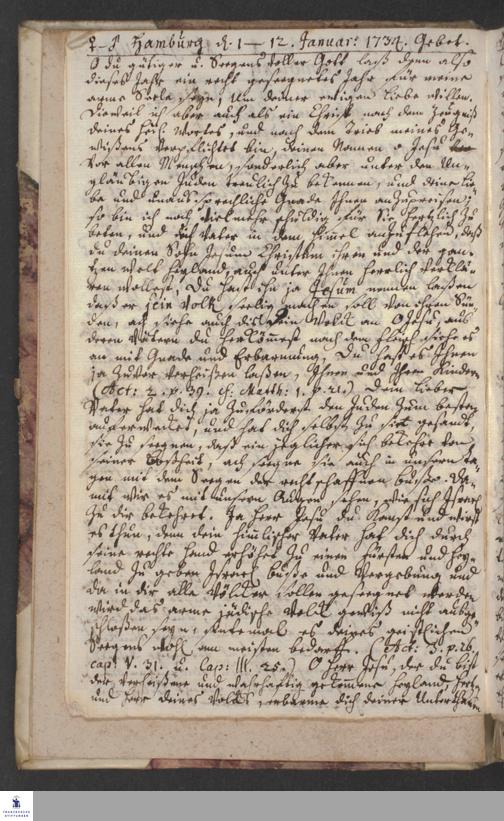 Hamburg d. 1–12. Januar: 1734. Gebet.
O du gütiger u. Seegens voller Gott laß denn also
dieses Jahr ein recht gesegnetes Jahr für meine
arme Seele seyn, um deiner ewigen Liebe willen.
Dieweil ich aber auch als ein Christ nach dem Zeugniß
deines heil. Wortes, und nach dem Trieb meines Ge-
wißens verpflichtet bin, deinen Nahmen o Jesu
vor allen Menschen, sonderlich aber unter den Un-
gläubigen Juden treulich zu bekennen, und deine Lie-
be und unaussprechliche Gnade ihnen anzupreisen;
so bin ich noch vielmehr schuldig für sie hertzlich zu
beten, und dich Vater in dem Himel anzuflehen, daß
du deinen Sohn Jesum Christum ihren und der gan-
tzen Welt Heyland, auch unter ihnen herrlich verklä-
ren wollest. Du hast ihn ja Jesum nennen laßen
daß er sein Volk seelig machen soll von ihren Sün-
den, ach siehe auch dis dein Volk an o Jesu, aus
deren Vätern du herkommest nach dem Fleisch siehe es
an mit Gnade und Erbarmung, Du hast es ihnen
ja zuvor verheißen laßen, ihnen und ihren Kindern
(Act: 2. p. 39. cf. Matth: 1. p. 21.) Dein lieber
Vater hat dich ja zuförderst den Juden zum besten
auferwecket, und hat dich selbst zu sie gesandt,
sie zu segnen, daß ein jeglicher sich bekehre von
seiner Bosheit, ach seegne sie auch in unsern Ta-
gen mit dem Seegen der rechtschaffnen buße. Da-
mit wir es mit unsern Augen sehen, wie sich Israel
zu dir bekehret. Ja Herr Jesu du kanst und wirst
es thun, denn dein himlischer Vater hat dich durch
seine rechte Hand erhöhet zu einen Fürsten und Hey-
land zu geben Israel buße und Vergebung und
da in dir alle Völker sollen gesegnet werden
wird das arme jüdische Volk gewiß nicht ausge-
schloßen seyn, sintemal es deines geistlichen
Seegens wohl am meisten bedarff. (Act: 3. p. 26.
cap: V. 31. u. Cap: III. 25.) O Herr Jesu, der du bist
der verheißene und wahrhaftig gekommene Heyland,
und Herr deines Volks, erbarme dich deiner Unterthanen
FRANCKESCHE
STIFTUNGEN